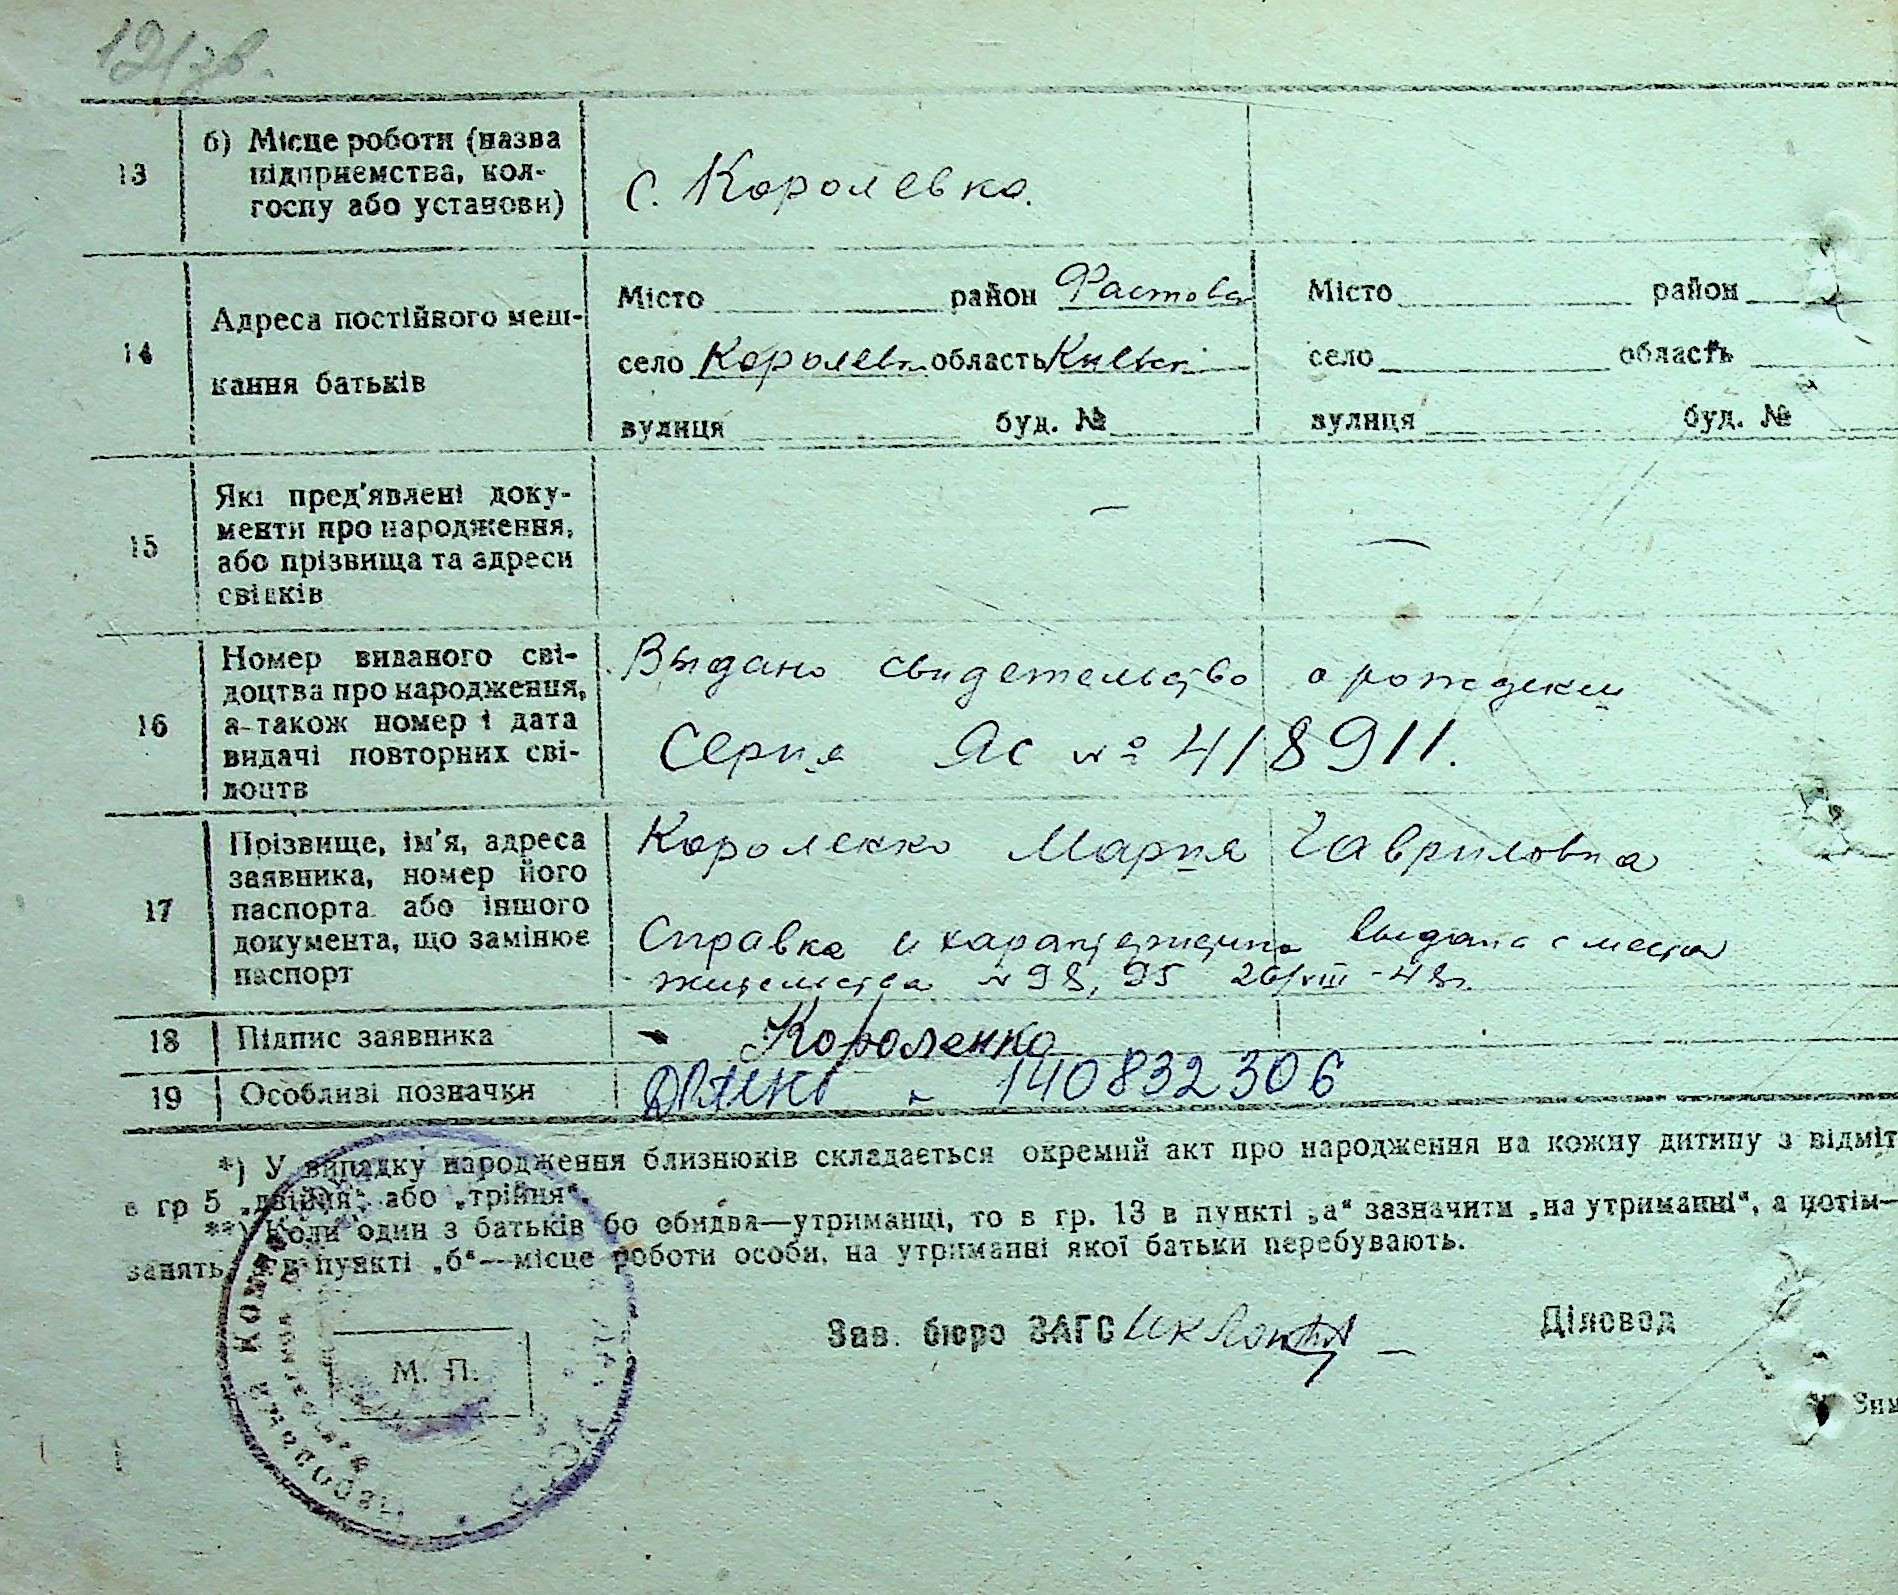 12/зв.
13
б) Місце роботи (назва
підприємства, кол-
госпу або установи)
с. Королевка.
14
Адреса постійного меш-
кання батьків
Місто район Фастовск
село Королевк область Киевск
вулиця буд. №
Місто район
село область
вулиця буд. №
15
Які пред'явлені доку-
менти про народження,
або прізвища та адреси
свідків
— —
16
Номер виданого сві-
доцтва про народження,
а також номер і дата
видачі повторних сві-
доцтв
Выдано свидетельство о рождении
Серия Яс № 418911.
17
Прізвище, ім'я, адреса
заявника, номер його
паспорта або іншого
документа, що замінює
паспорт
Короленко Мария Гавриловна
Справка и характеристика выдана с места
жительства № 98, 95 26/VIII-48г.
18
Підпис заявника
Короленко
19
Особливі позначки
140832306
*) У випадку народження близнюків складається окремий акт про народження на кожну дитину з відміт
в гр 5 „двійня“ або „трійня“.
**) Коли один з батьків бо обидва—утриманці, то в гр. 13 в пункті „а“ зазначити „на утриманні“, а потім—
занять, а в пункті „б“—місце роботи особи, на утриманні якої батьки перебувають.
Зав. бюро ЗАГС
Діловод
М. П.
Зим